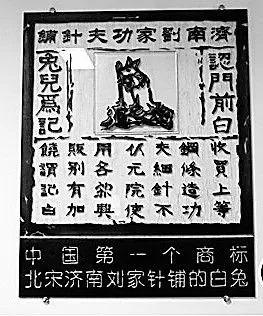 濟南劉家功夫針鋪
認門前白
兔兒爲記
收買上等
鋼條造功
夫細針不
院使
用興
販別有加
饒記白
中国第一个商标
北宋济南刘家针铺的白兔